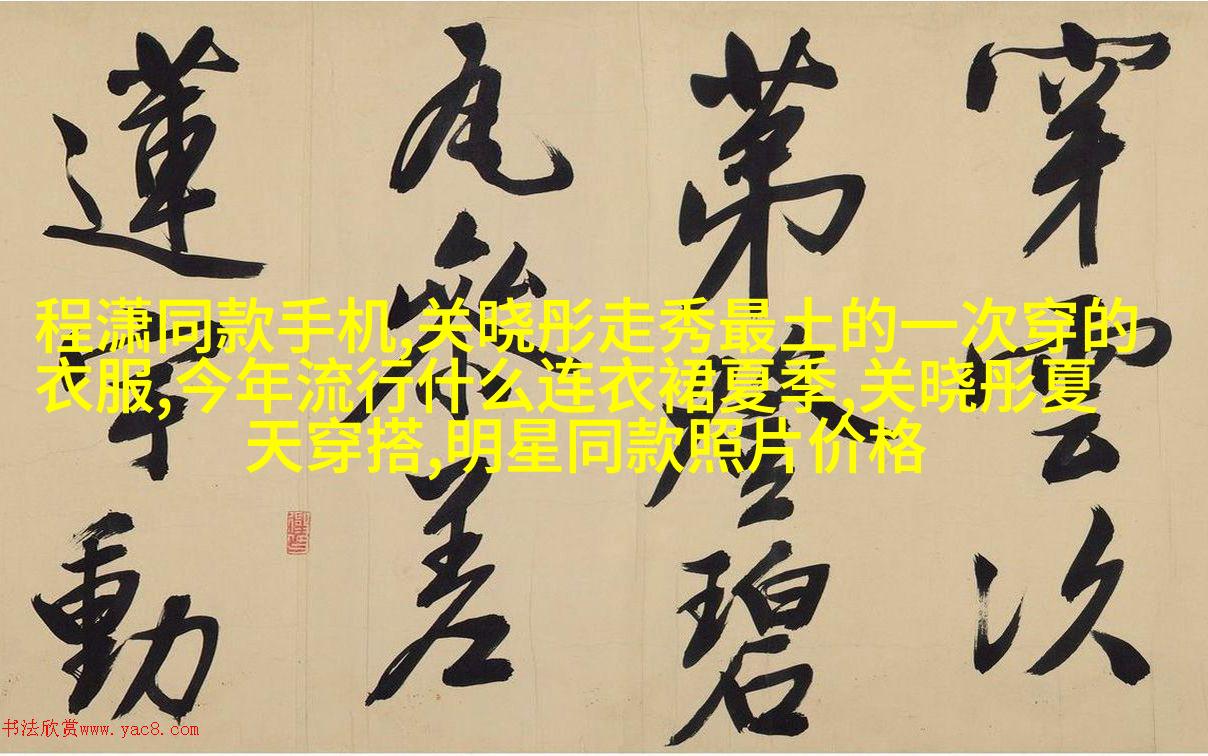 穿雲次
第碧
瓦參差
蓮宇動
程潇同款手机,关晓彤走秀最土的一次穿的
衣服,今年流行什么连衣裙夏季,关晓彤夏
天穿搭,明星同款照片价格
书法欣赏www.yac8.com